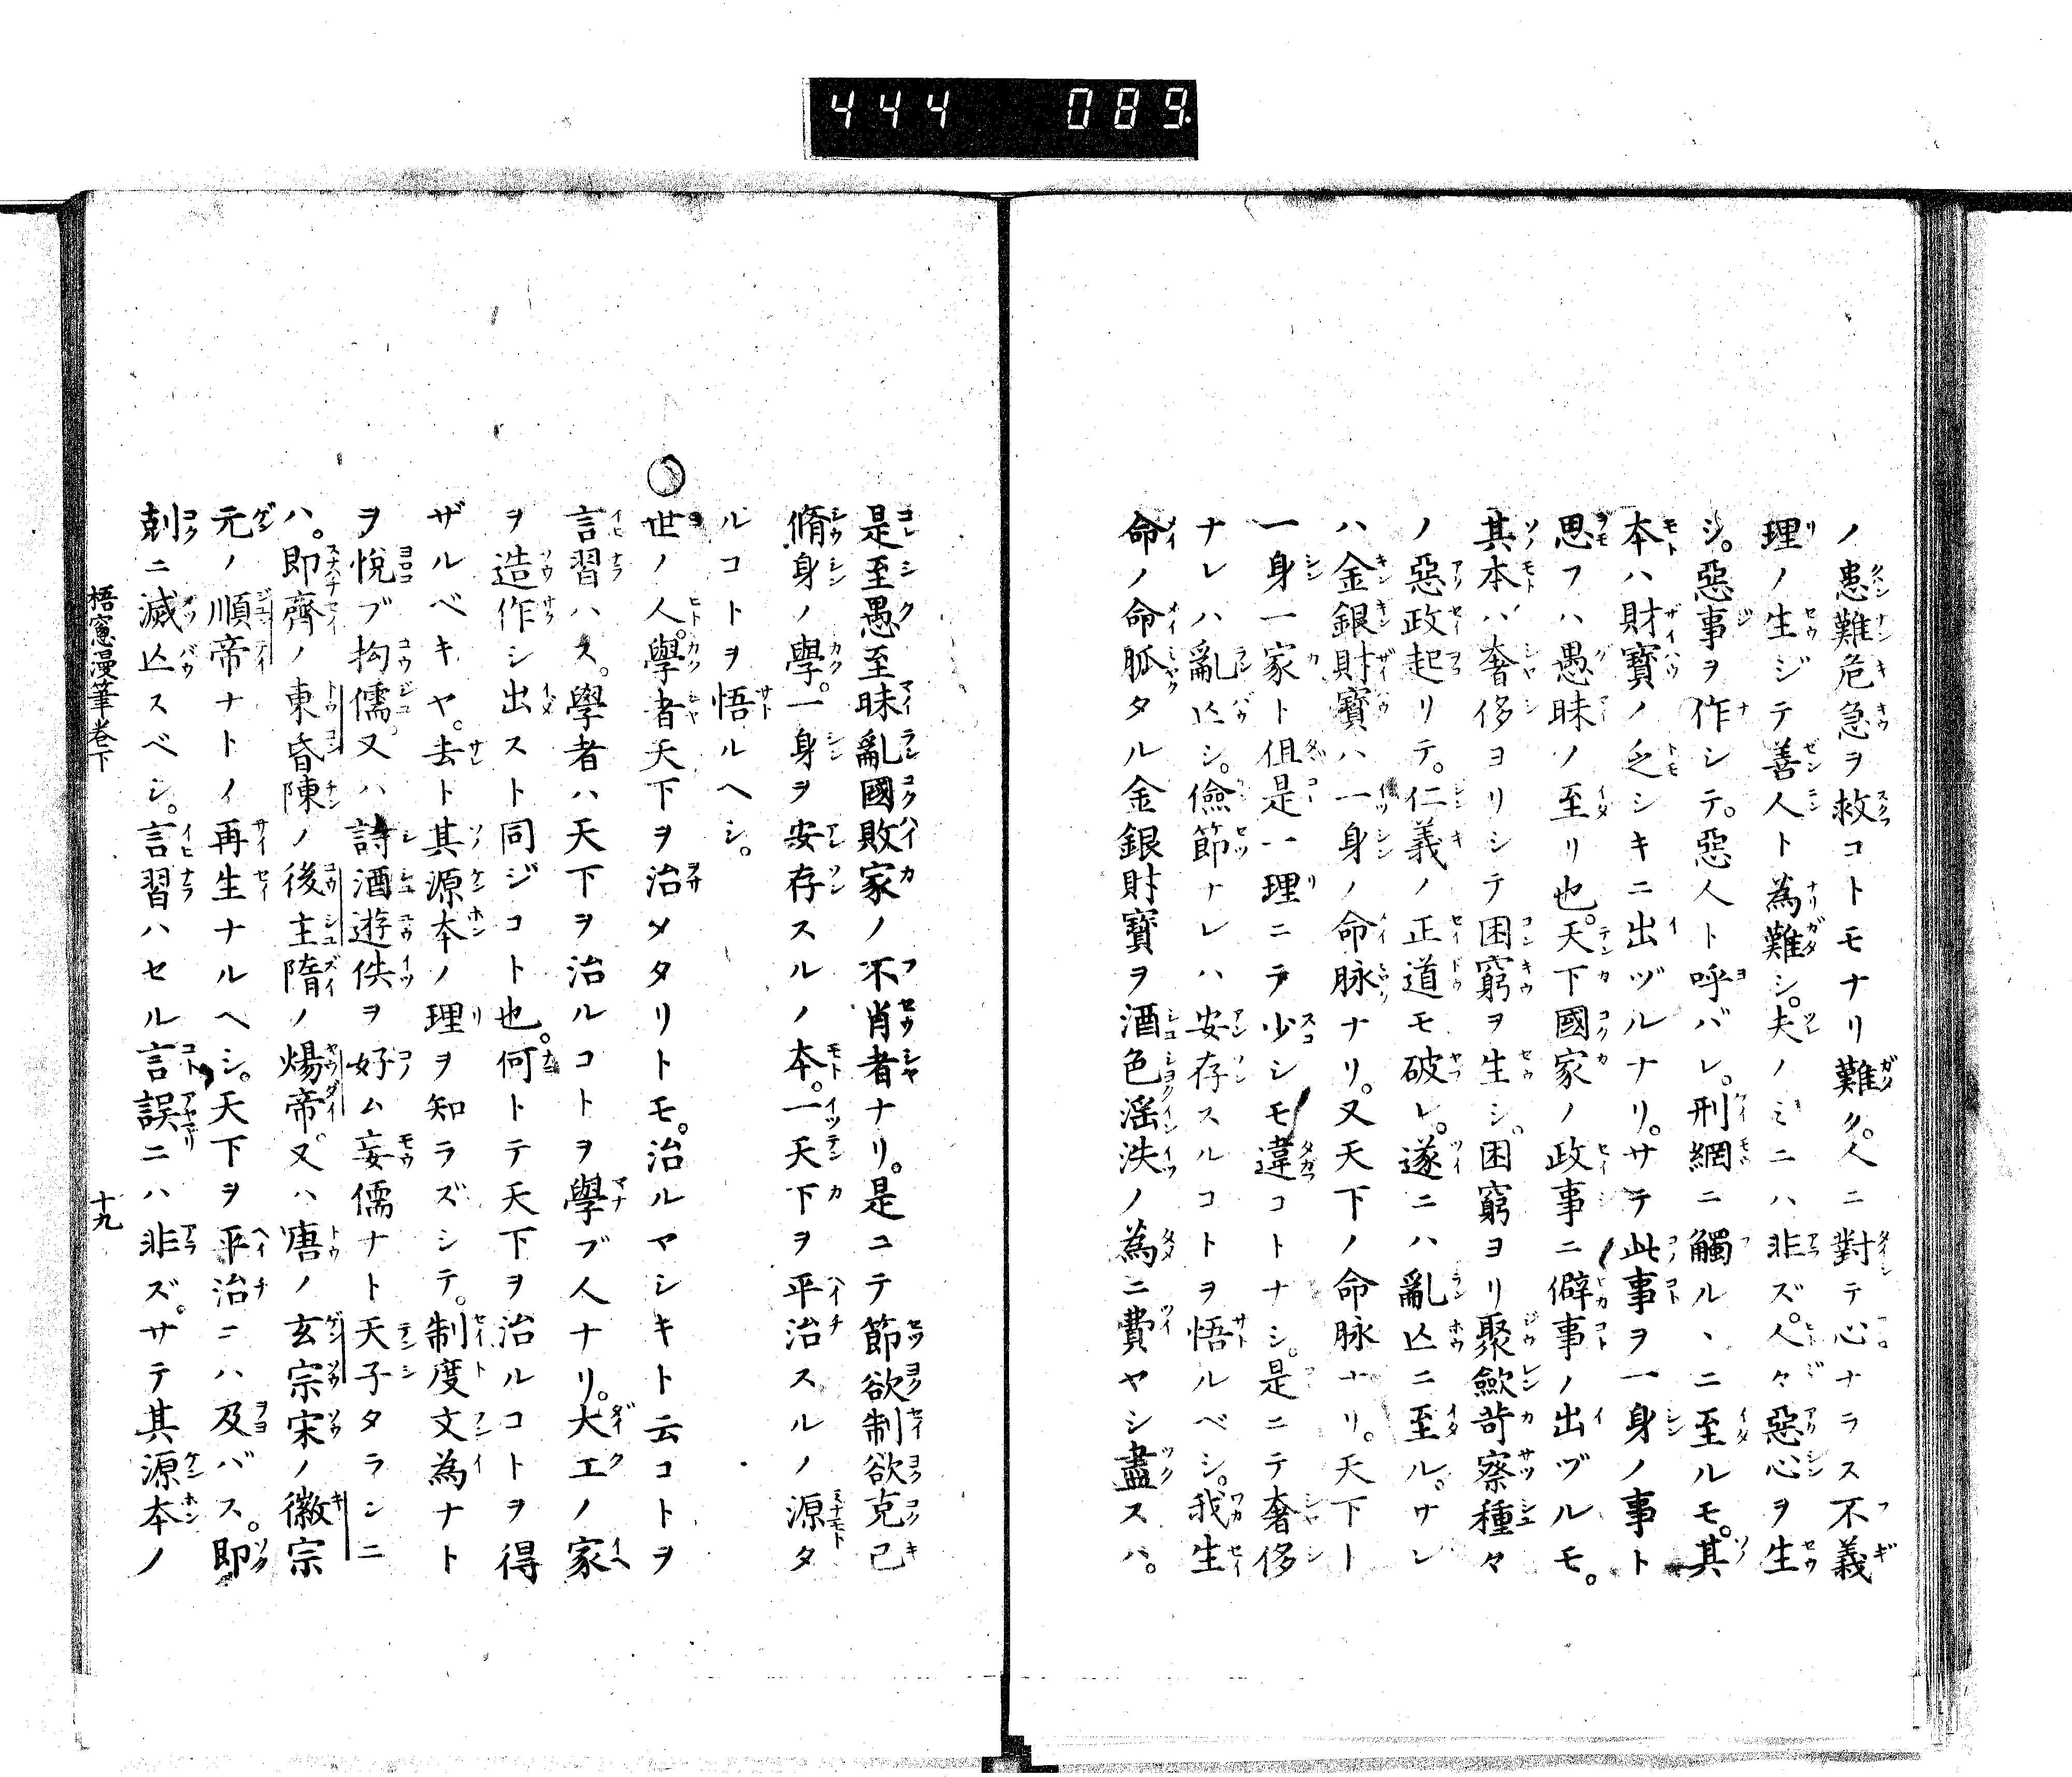 444 089.
ノ患難危急ヲ救コトモナリ難ク。人ニ對テ心ナラス不義
理ノ生ジテ善人ト為難シ。夫ノミニハ非ズ。人々惡心ヲ生
シ。惡事ヲ作シテ。惡人ト呼バレ。刑網ニ觸ルヽニ至ルモ。其
本ハ財寶ノ乏シキニ出ヅルナリ。サテ此事ヲ一身ノ事ト
思フハ愚昧ノ至リ也。天下國家ノ政事ニ僻事ノ出ヅルモ。
其本ハ奢侈ヨリシテ困窮ヲ生シ。困窮ヨリ聚歛苛察種々
ノ惡政起リテ。仁義ノ正道モ破レ。遂ニハ亂亾ニ至ル。サレ
ハ金銀財寶ハ一身ノ命脉ナリ。又天下ノ命脉ナリ。天下ト
一身一家ト但是一理ニテ少シモ違コトナシ。是ニテ奢侈
ナレハ亂亾シ。儉節ナレハ安存スルコトヲ悟ルベシ。我生
命ノ命脈タル金銀財寶ヲ酒色淫泆ノ為ニ費ヤシ盡スハ。
是至愚至昧亂國敗家ノ不肖者ナリ。是ユテ節欲制欲克己
脩身ノ學。一身ヲ安存スルノ本。一天下ヲ平治スルノ源タ
ルコトヲ悟ルヘシ。
○世ノ人。學者天下ヲ治メタリトモ。治ルマシキト云コトヲ
言習ハス。學者ハ天下ヲ治ルコトヲ學ブ人ナリ。大工ノ家
ヲ造作シ出スト同ジコト也。何トテ天下ヲ治ルコトヲ得
ザルベキヤ。去ト其源本ノ理ヲ知ラズシテ。制度文為ナト
ヲ悅ブ拘儒。又ハ詩酒遊佚ヲ好ム妄儒ナト天子タランニ
ハ。即齊ノ東昏陳ノ後主隋ノ煬帝。又ハ唐ノ玄宗宋ノ徽宗
元ノ順帝ナトノ再生ナルヘシ。天下ヲ平治ニハ及バス。即
剋ニ滅亾スベシ。言習ハセル言誤ニハ非ズ。サテ其源本ノ
梧窻漫筆卷下 十九